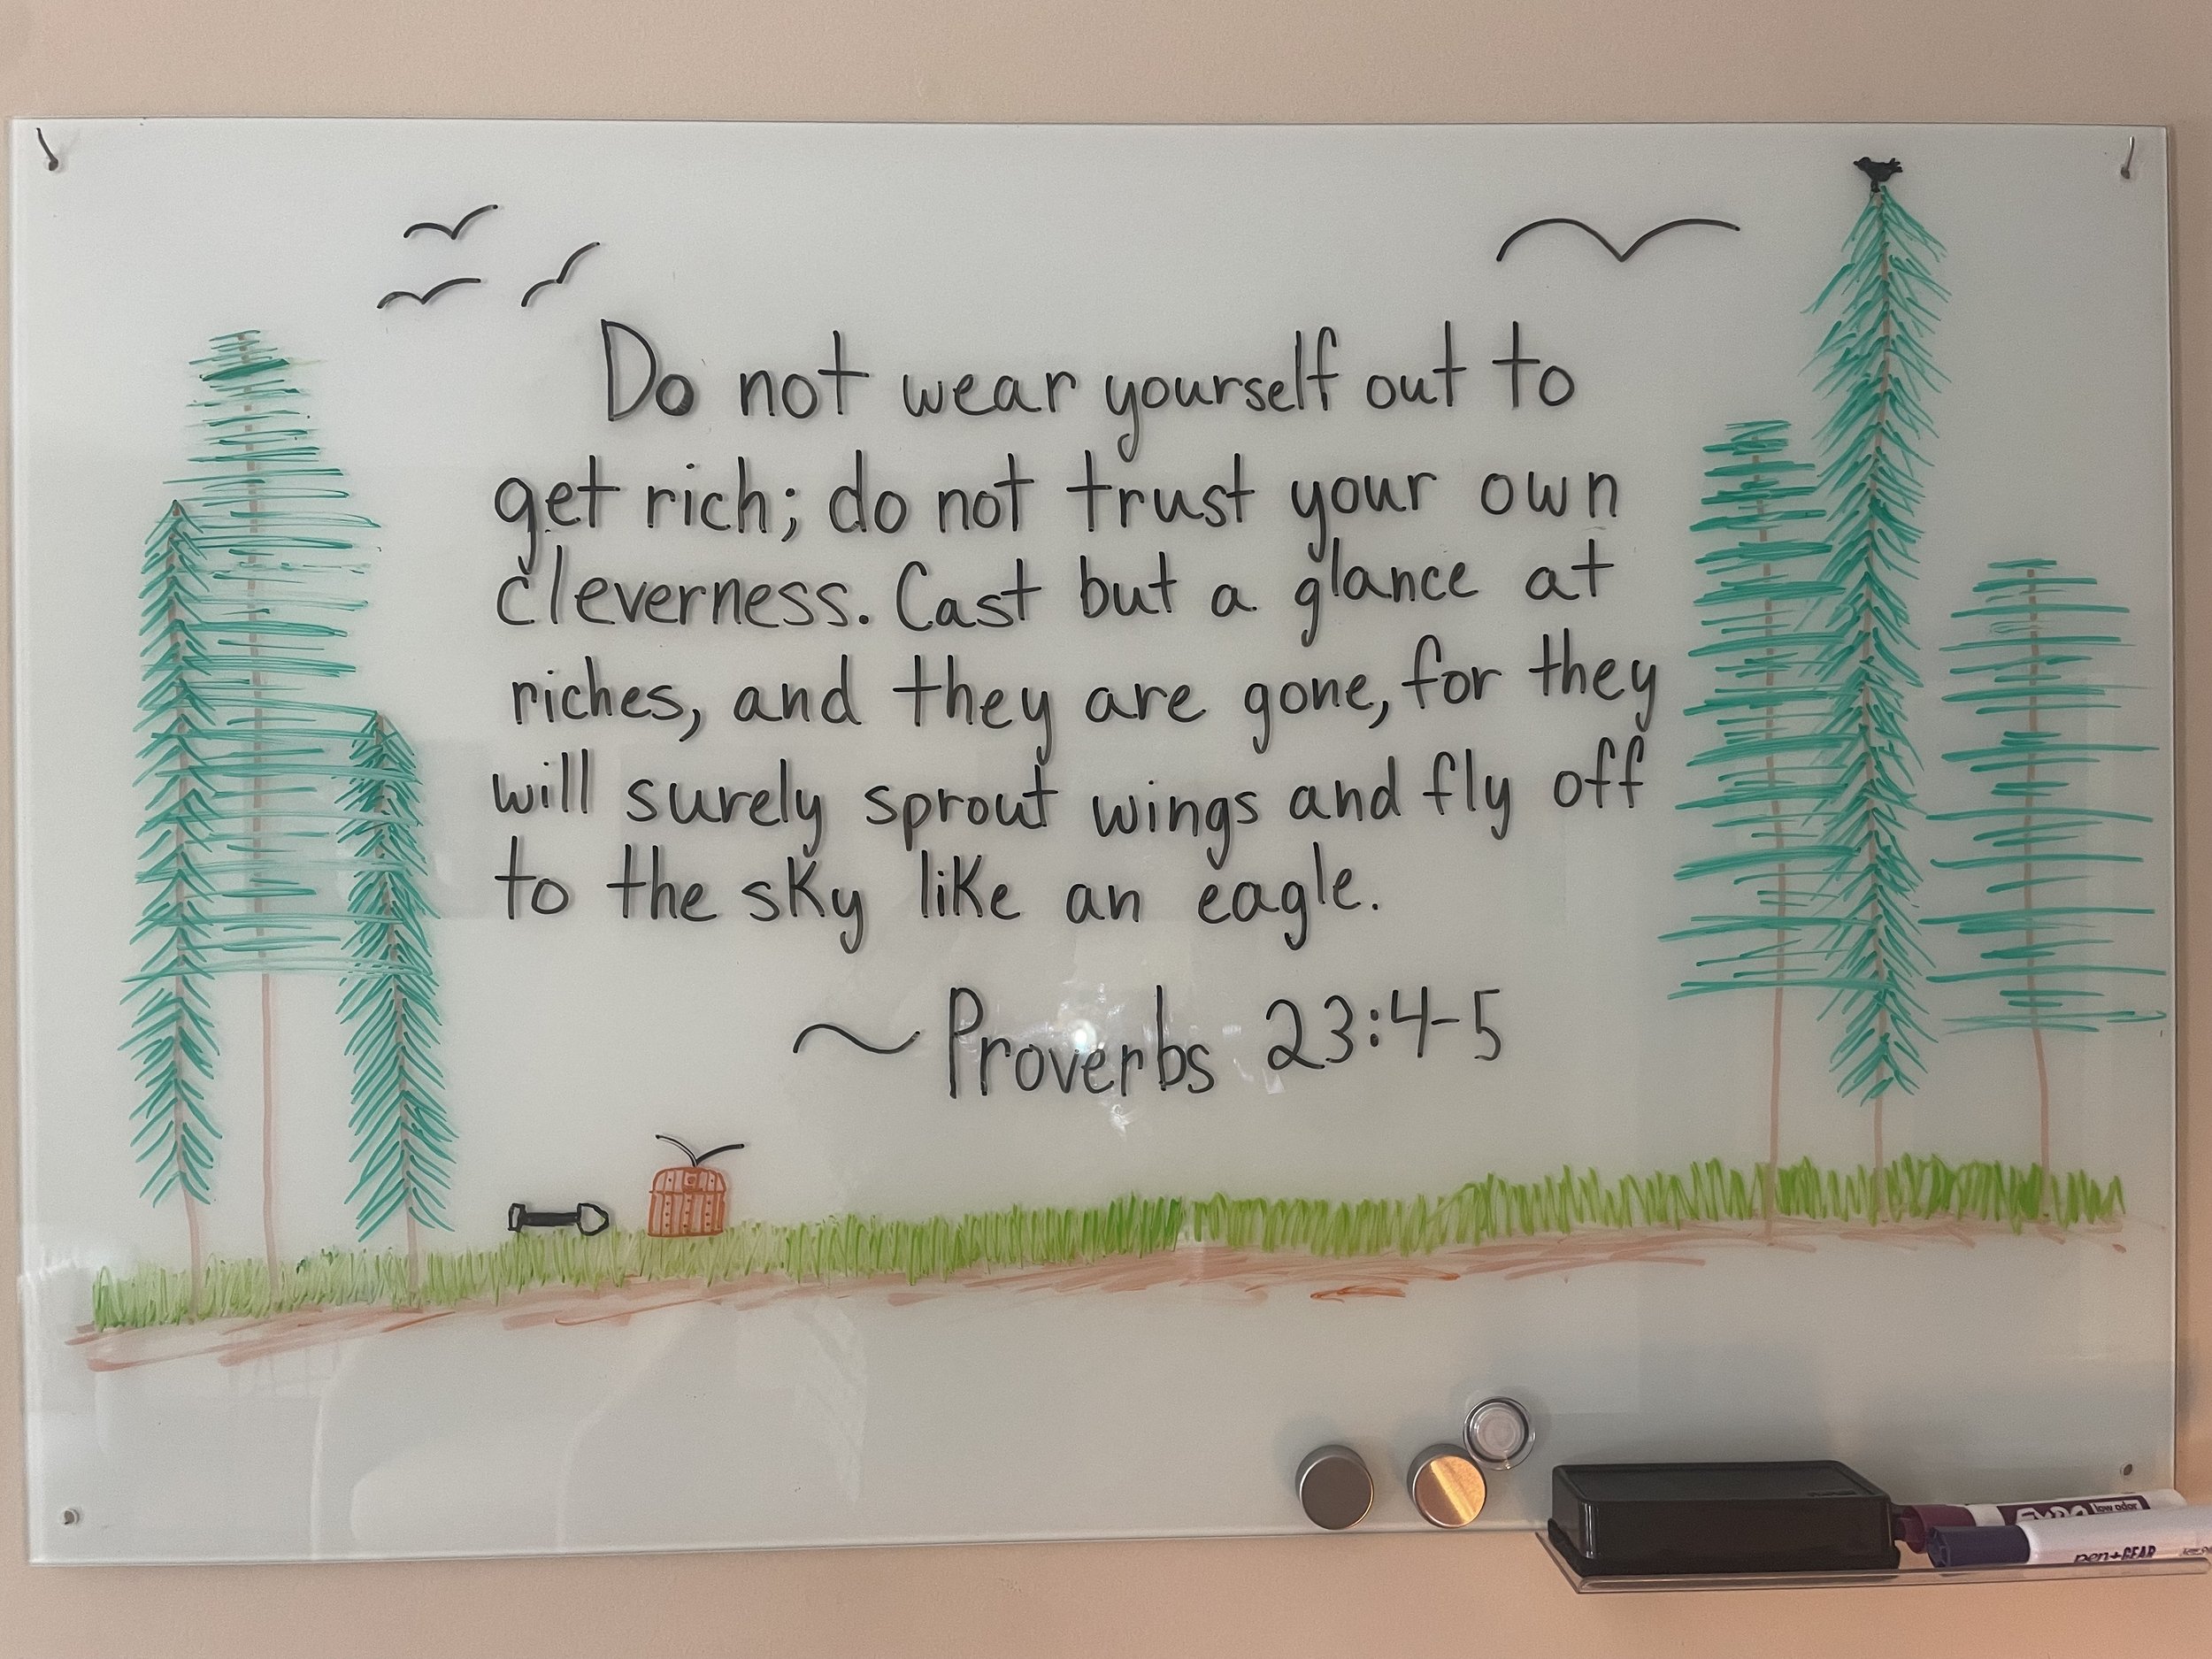 Do not wear yourself out to
get rich; do not trust your own
cleverness. Cast but a glance at
riches, and they are gone, for they
will surely sprout wings and fly off
to the sky like an eagle.
~ Proverbs 23:4-5
EXPO low odor
pen+GEAR